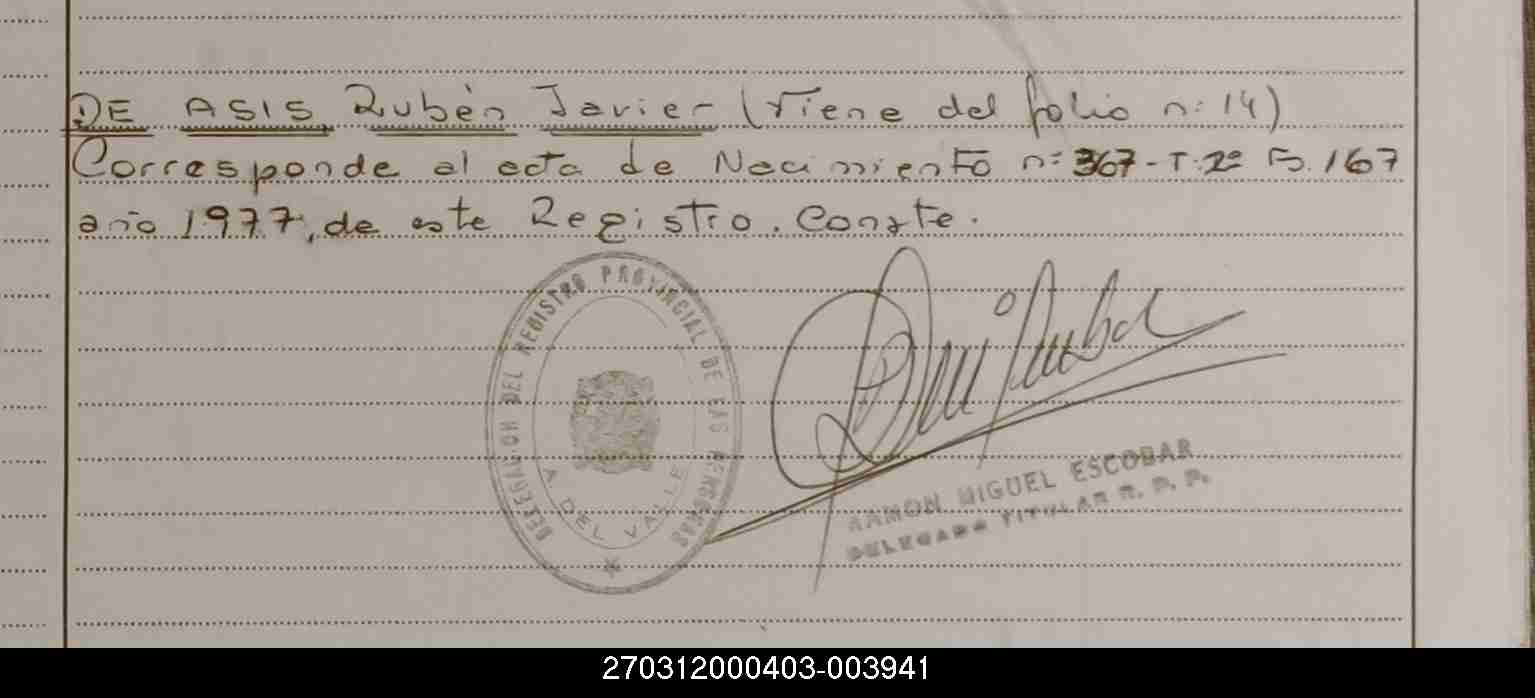 DE ASIS, Rubén Javier (Viene del folio n: 14)
Corresponde al acta de Nacimiento n: 367 - T: 2º F. 167
año 1977, de este Registro. Conste.
DELEGACION DEL REGISTRO PROVINCIAL DE LAS PERSONAS
A DEL VALLE
RAMON MIGUEL ESCOBAR
DELEGADO TITULAR R. P. P.
270312000403-003941